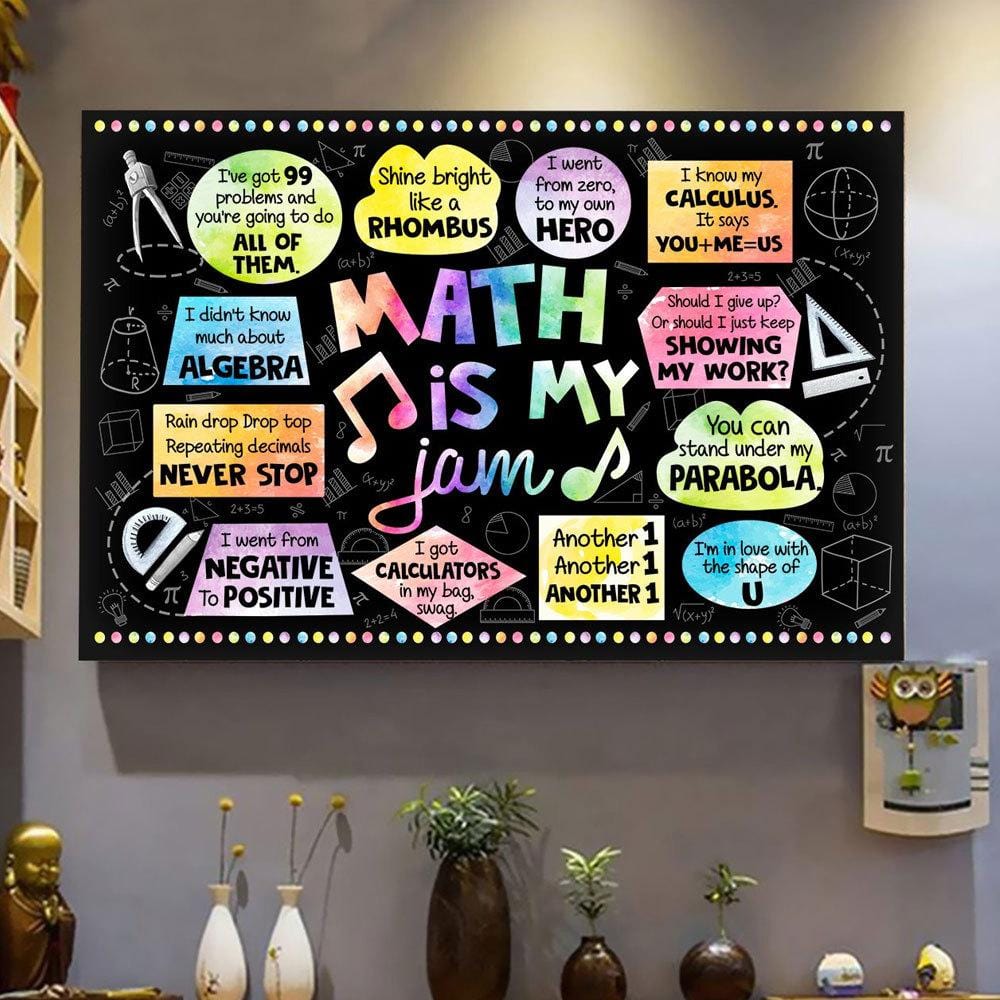 I've got 99
problems and
you're going to do
ALL OF
THEM.
Shine bright
like a
RHOMBUS
I went
from zero,
to my own
HERO
I know my
CALCULUS.
It says
YOU+ME=US
MATH
iS MY
jam
I didn't know
much about
ALGEBRA
Should I give up?
Or should I just keep
SHOWING
MY WORK?
Rain drop Drop top
Repeating decimals
NEVER STOP
You can
stand under my
PARABOLA.
I went from
NEGATIVE
To POSITIVE
I got
CALCULATORS
in my bag,
swag.
Another 1
Another 1
ANOTHER 1
I'm in love with
the shape of
U
π
π
(a+b)²
(a+b)²
(x+y)²
2+3=5
r
R
8
(x+y)²
π
2+3=5
π
8
(a+b)²
(a+b)²
π
2+2=4
√(x+y)²